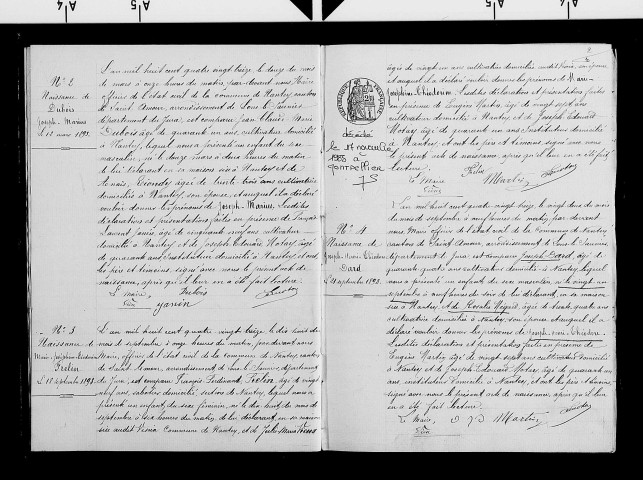 N° 2
Naissance de
Dubois
Joseph-Marius
Le 12 mars 1893.
L'an mil huit cent quatre vingt treize le douze du mois
de mars à onze heures du matin, par devant nous Maire
officier de l'état civil de la commune de Nantey, canton
de Saint Amour, arrondissement de Lons le Saunier
département du Jura, est comparu Jean Claude
Dubois âgé de quarante un ans, cultivateur domicilié
à Nantey, lequel nous a présenté un enfant du sexe
masculin, né le douze mars à deux heures du matin
de lui déclarant en sa maison sise à Nantey et de
âgée de trente trois ans cultivatrice
domiciliée à Nantey, son épouse, et auquel il a déclaré
vouloir donner les prénoms de Joseph-Marius. Lesdites
déclarations et présentations faites en présence de
Laurent âgé de cinquante ans, cultivateur
domicilié à Nantey et de Joseph Edouard Notay âgé
de quarante ans Instituteur domicilié à Nantey et ont
les père et témoins signé avec nous le présent acte de
naissance, après qu'il leur en a été fait lecture.
Le Maire
Dubois
N° 3
Naissance de
Marie-Joséphine-Théodorine
Le 18 septembre 1893.
L'an mil huit cent quatre vingt treize le dix huit du
mois de septembre à onze heures du matin, par devant nous
Maire, officier de l'état civil de la commune de Nantey, canton
de Saint Amour, arrondissement de Lons le Saunier, département
du Jura, est comparu François Ferdinand âgé de vingt
neuf ans, sabotier domicilié section de Nantey, lequel nous a
présenté un enfant, du sexe féminin, né le dix huit du mois de
septembre à heures du matin, de lui déclarant, en sa maison
sise audit Commune de Nantey, et de Julie Maria
âgée de vingt un ans cultivatrice domiciliée son épouse
et auquel il a déclaré vouloir donner les prénoms de Marie-
Joséphine-Théodorine. Lesdites déclarations et présentations faites
en présence de Eugène Martin âgé de vingt sept ans
cultivateur domicilié à Nantey et de Joseph Edouard
Notay âgé de quarante un ans Instituteur domicilié
à Nantey, et ont les père et témoins signé avec nous
le présent acte de naissance après qu'il leur en a été fait
lecture.
Le Maire
Martin
décédé
le 17
1988 à
Montpellier
N° 4
Naissance de
Joseph-Henri-Théodore
Dard
Le 21 septembre 1893.
L'an mil huit cent quatre vingt treize, le vingt deux du mois
du mois de septembre à neuf heures du matin, par devant
nous Maire officier de l'état civil de la Commune de Nantey
canton de Saint Amour, arrondissement de Lons le Saunier,
département du Jura est comparu Joseph Dard, âgé de
quarante quatre ans cultivateur domicilié à Nantey lequel
nous a présenté un enfant du sexe masculin, né le vingt un
septembre à neuf heures du soir de lui déclarant, en sa maison
sise à Nantey, et de Rosalie âgée de trente quatre ans
cultivatrice domiciliée à Nantey, son épouse. Auquel il a
déclaré vouloir donner les prénoms de Joseph-Henri-Théodore.
Lesdites déclaration et présentation faites en présence de
Eugène Martin âgé de vingt sept ans cultivateur domicilié
à Nantey et de Joseph Edouard Notay âgé de quarante un
ans, instituteur domicilié à Nantey, et ont les père et témoins
signé avec nous le présent acte de naissance, après qu'il leur
en a été fait lecture.
Le Maire,
Martin